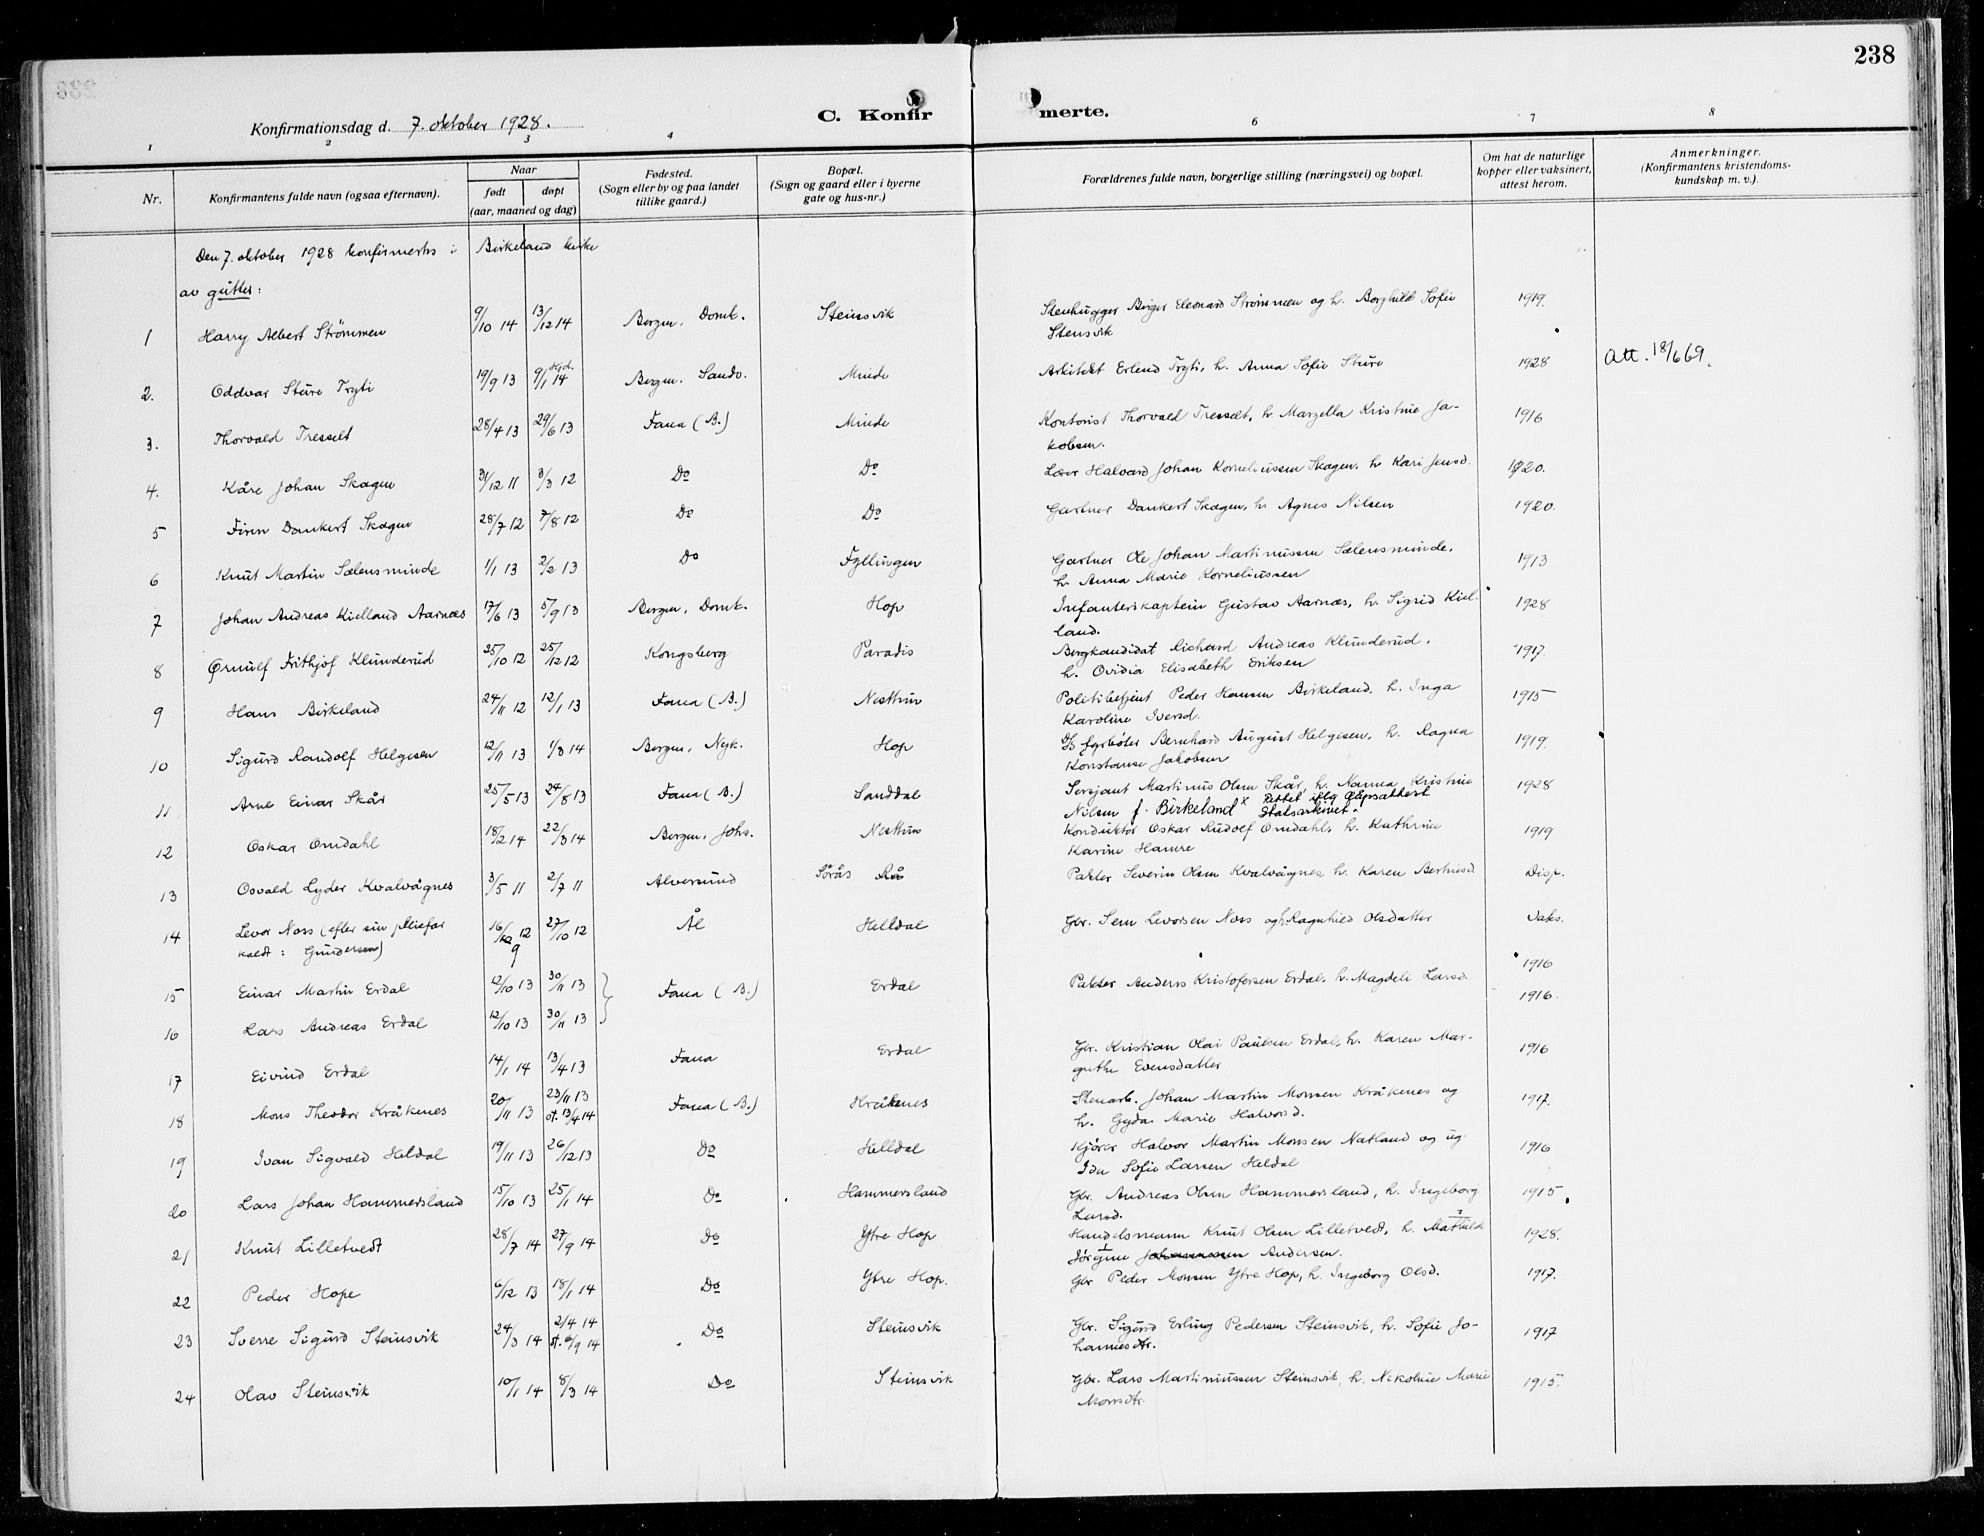 238
Konfirmationsdag d. 7. oktober 1928.
C. Konfirmerte.
1 2 3 4 6 7 8
Nr.
Konfirmantens fulde navn (ogsaa efternavn).
Naar
født døpt
(aar, maaned og dag)
Fødested.
(Sogn eller by og paa landet
tillike gaard.)
Bopæl.
(Sogn og gaard eller i byerne
gate og hus-nr.)
Forældrenes fulde navn, borgerlige stilling (næringsvei) og bopæl.
Om hat de naturlige
kopper eller vaksinert,
attest herom.
Anmerkninger.
(Konfirmantens kristendoms-
kundskap m. v.).
Den 7. oktober 1928 konfirmerts i Birkeland kirke
av gutter:
1 Harry Albert Strömmen 9/10 14 13/12 14 Bergen, Domk. Steinsvik Stenhugger Birger Eleonard Strömmen og h. Borghild Sofie 1919.
Stensvik
2. Oddvar Sture Tryti 19/9 13 9/1 14 Bergen, Sandv. Minde Arkitekt Erlend Tryti, h. Anna Sofie Sture 1928 Att. 18/6 69.
3. Thorvald Tresselt 28/4 13 29/6 13 Fana (B.) Minde Kontorist Thorvald Tresselt, h. Marzella Kristine Ja-
kobsen. 1916
4. Kåre Johan Skagen 31/12 11 3/3 12 Do Do Halvard Johan Korneliussen Skagen, h. Kari Jensd. 1920.
5 Finn Dankert Skagen 28/7 12 7/8 12 Do Do Gartner Dankert Skagen, h. Agnes Nilsen 1920.
6 Knut Martin Sælensminde 1/1 13 2/2 13 Do Fyllingen Gartner Ole Johan Martinussen Sælensminde, 1913
h. Anna Marie Korneliussen
7 Johan Andreas Kielland Aarnæs 17/6 13 5/9 13 Bergen, Domk. Hop Infanterikaptein Gustav Aarnæs, h. Sigrid Kiel- 1928
land.
8 Ørnulf Frithjof Klunderud 25/10 12 25/12 12 Kongsberg Paradis Bergkandidat Richard Andreas Klunderud, 1917.
h. Ovidia Elisabeth Eriksen
9 Hans Birkeland 24/11 12 12/1 13 Fana (B.) Nesttun Politibetjent Peder Hansen Birkeland, h. Inga 1915
Karoline Iversd.
10 Sigurd Randolf Helgesen 12/11 13 1/3 14 Bergen, Nyk. Hop fyrbøter Bernhard August Helgesen, h. Ragna 1919.
Konstanse Jakobsen
11 Arne Einar Skår 25/5 13 24/8 13 Fana (B.) Sanddal Sersjant Martinus Olsen Skår, h. Nanna Kristine 1928
Nilsen f. Birkeland x Rettet iflg dåpsattest
Statsarkivet.
12 Oskar Omdahl 18/2 14 22/3 14 Bergen, Johs. Nesttun Konduktør Oskar Rudolf Omdahl, h. Kathrine 1919
Karine Hamre
13 Osvald Lyder Kvalvågnes 3/5 11 2/7 11 Alversund Sörås Rå Pakter Severin Olsen Kvalvågnes, h. Karen Berntsd. Disp.
14 Levor Noss (efter sin pleiefar 16/9 12 27/10 12 Ål Helldal Gbr. Sem Levorsen Noss og h. Ragnhild Olsdatter Vaks.
kaldt: Gundersen)
15 Einar Martin Erdal 12/10 13 30/11 13 Fana (B.) Erdal Pakter Anders Kristofersen Erdal, h. Magdeli Larsd. 1916
16 Lars Andreas Erdal 12/10 13 30/11 13 1916.
17 Eivind Erdal 14/1 14 13/4 13 Fana Erdal Gbr. Kristian Olai Paulsen Erdal, h. Karen Mar- 1916
grethe Evensdatter
18 Mons Theodor Kråkenes 20/11 13 23/11 13 st. 13/4 14 Fana (B.) Kråkenes Stenarb. Johan Martin Monsen Kråkenes og 1917.
h. Gyda Marie Halvorsd.
19 Ivan Sigvald Heldal 19/11 13 26/12 13 Do Helldal Kjører Halvor Martin Monsen Natland og ug. 1916
Ida Sofie Larsen Heldal
20 Lars Johan Hammersland 15/10 13 25/1 14 Do Hammersland Gbr. Andreas Olsen Hammersland, h. Ingeborg 1915
Larsd.
21 Knut Lilletvedt 28/7 14 27/9 14 Do Ytre Hop Handelsmann Knut Olsen Lilletvedt, h. Mathilde 1928.
Jørgine Johannessen Andersen.
22 Peder Hope 6/12 13 18/1 14 Do Ytre Hop. Gbr Peder Monsen Ytre Hop, h. Ingeborg Olsd. 1917.
23 Sverre Sigurd Steinsvik 24/3 14 2/4 14 st. 6/9 14 Do Steinsvik Gbr. Sigurd Erling Pedersen Steinsvik, h. Sofie Jo- 1917
hannesdtr.
24 Olav Steinsvik 10/1 14 8/3 14 Do Steinsvik Gbr. Lars Martiniussen Steinsvik, h. Nikoline Marie 1915.
Monsdtr.